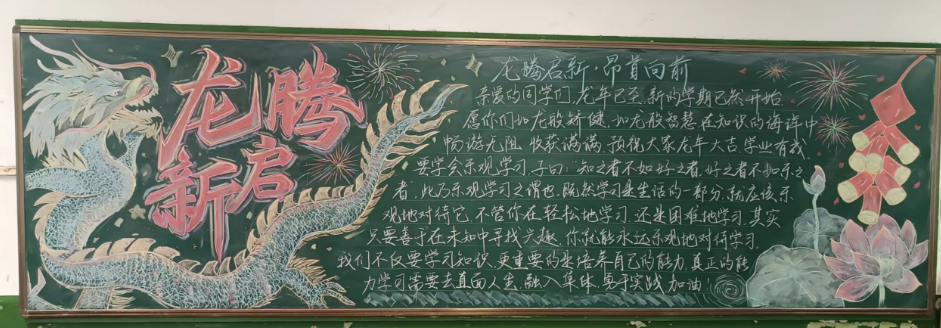 龙腾
新启
龙腾启新·昂首向前
亲爱的同学们，龙年已至，新的学期已然开始
愿你们如龙般矫健，如龙般智慧，在知识的海洋中
畅游无阻，收获满满，预祝大家龙年大吉，学业有成
要学会乐观学习，子曰：知之者不如好之者，好之者不如乐之
者，此乃乐观学习之谓也，既然学习是生活的一部分，就应该乐
观地对待它，不管你在轻松地学习，还是困难地学习，其实
只要善于在未知中寻找兴趣，你就能永远乐观地对待学习
我们不仅要学习知识，更重要的是培养自己的能力，真正的能
力学习需要去直面人生，融入集体，勇于实践，加油！